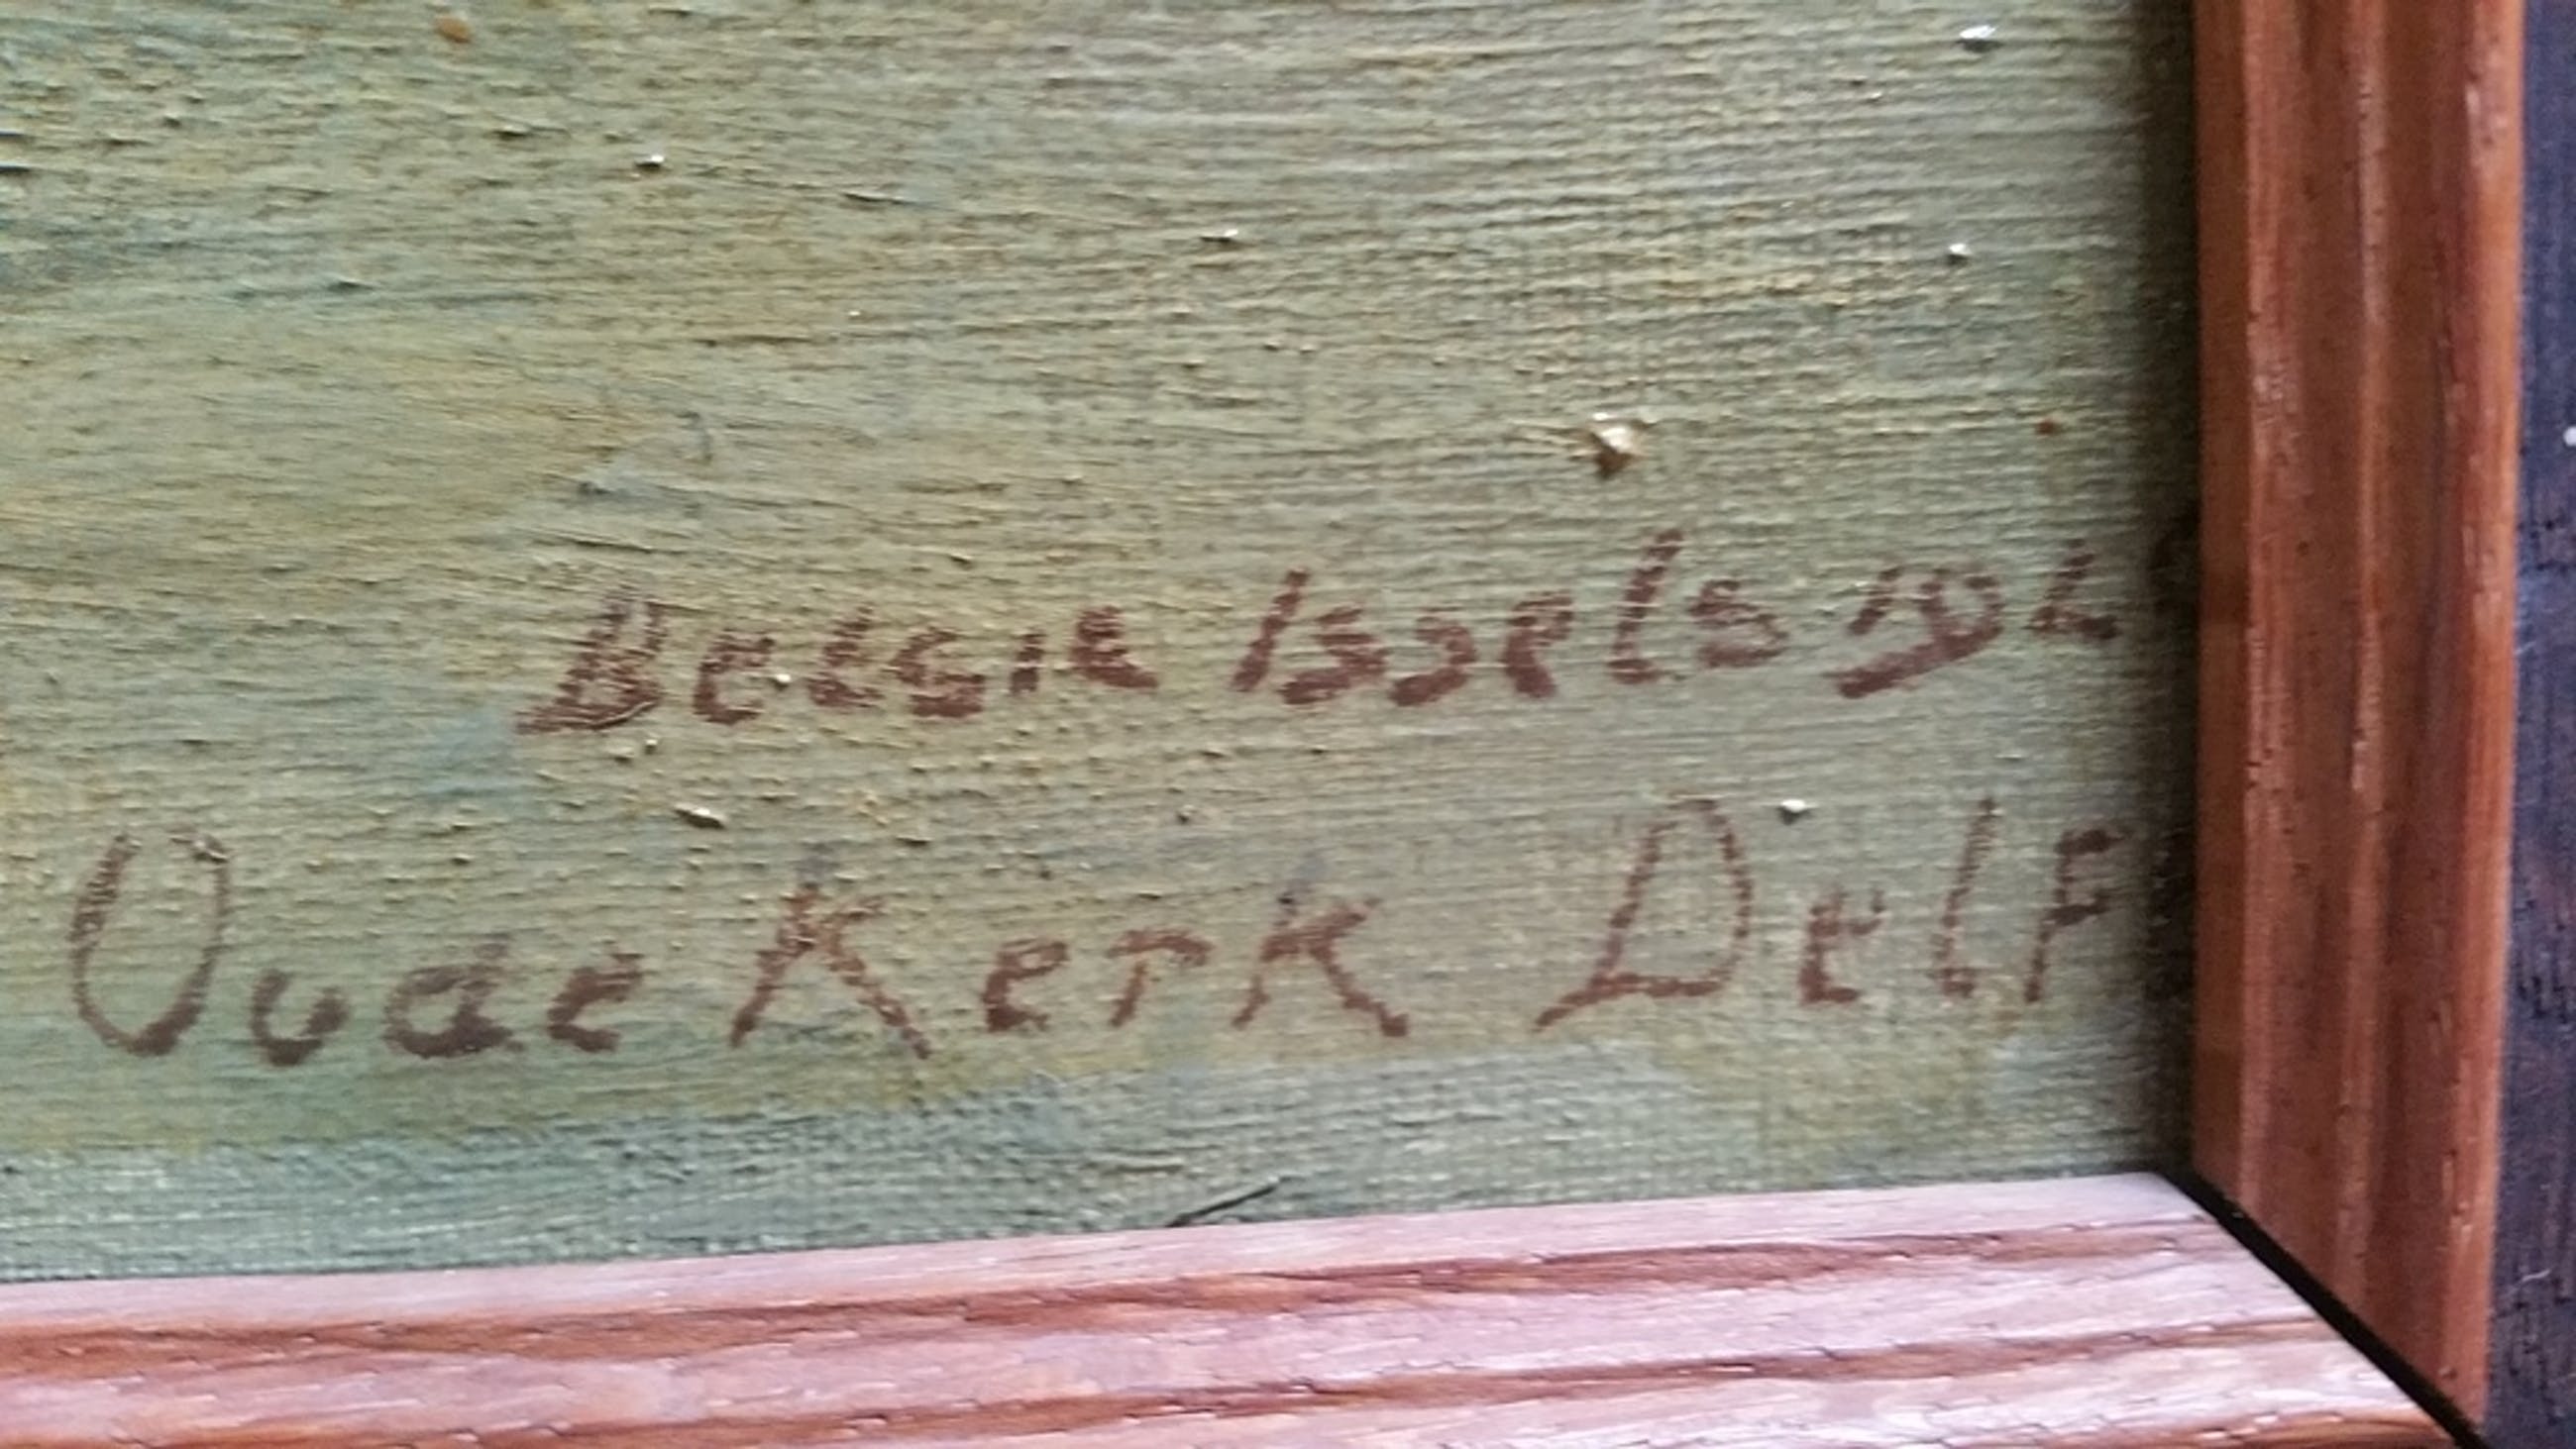 Betsie Isselstyn
Oude Kerk Delf